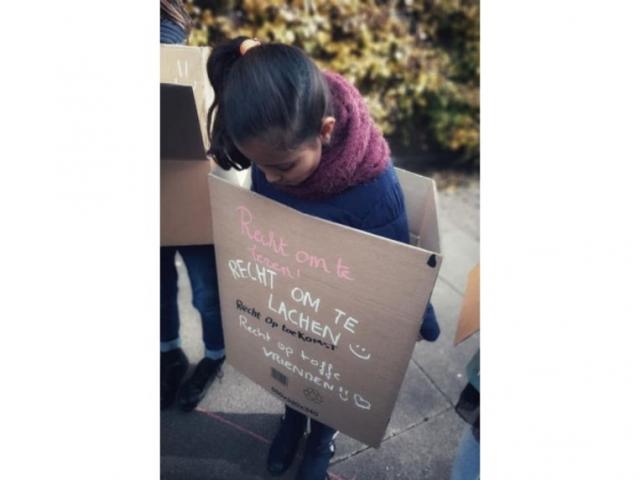 Recht om te
leren!
RECHT OM TE
LACHEN
Recht op toekomst
Recht op toffe
VRIENDEN!!